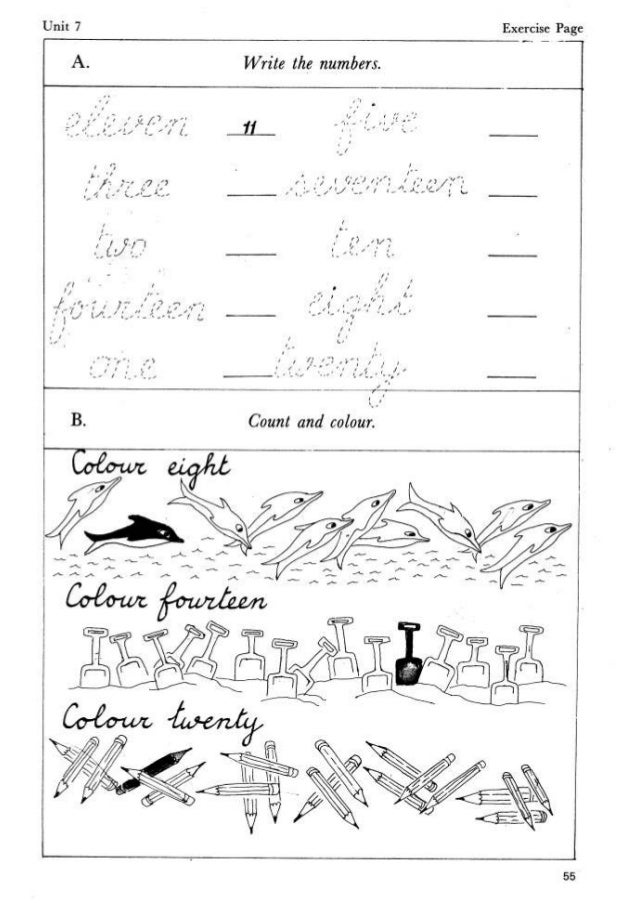 Unit 7 Exercise Page
A. Write the numbers.
eleven 11 five
three seventeen
two ten
fourteen eight
one twenty
B. Count and colour.
Colour eight
Colour fourteen
Colour twenty
55